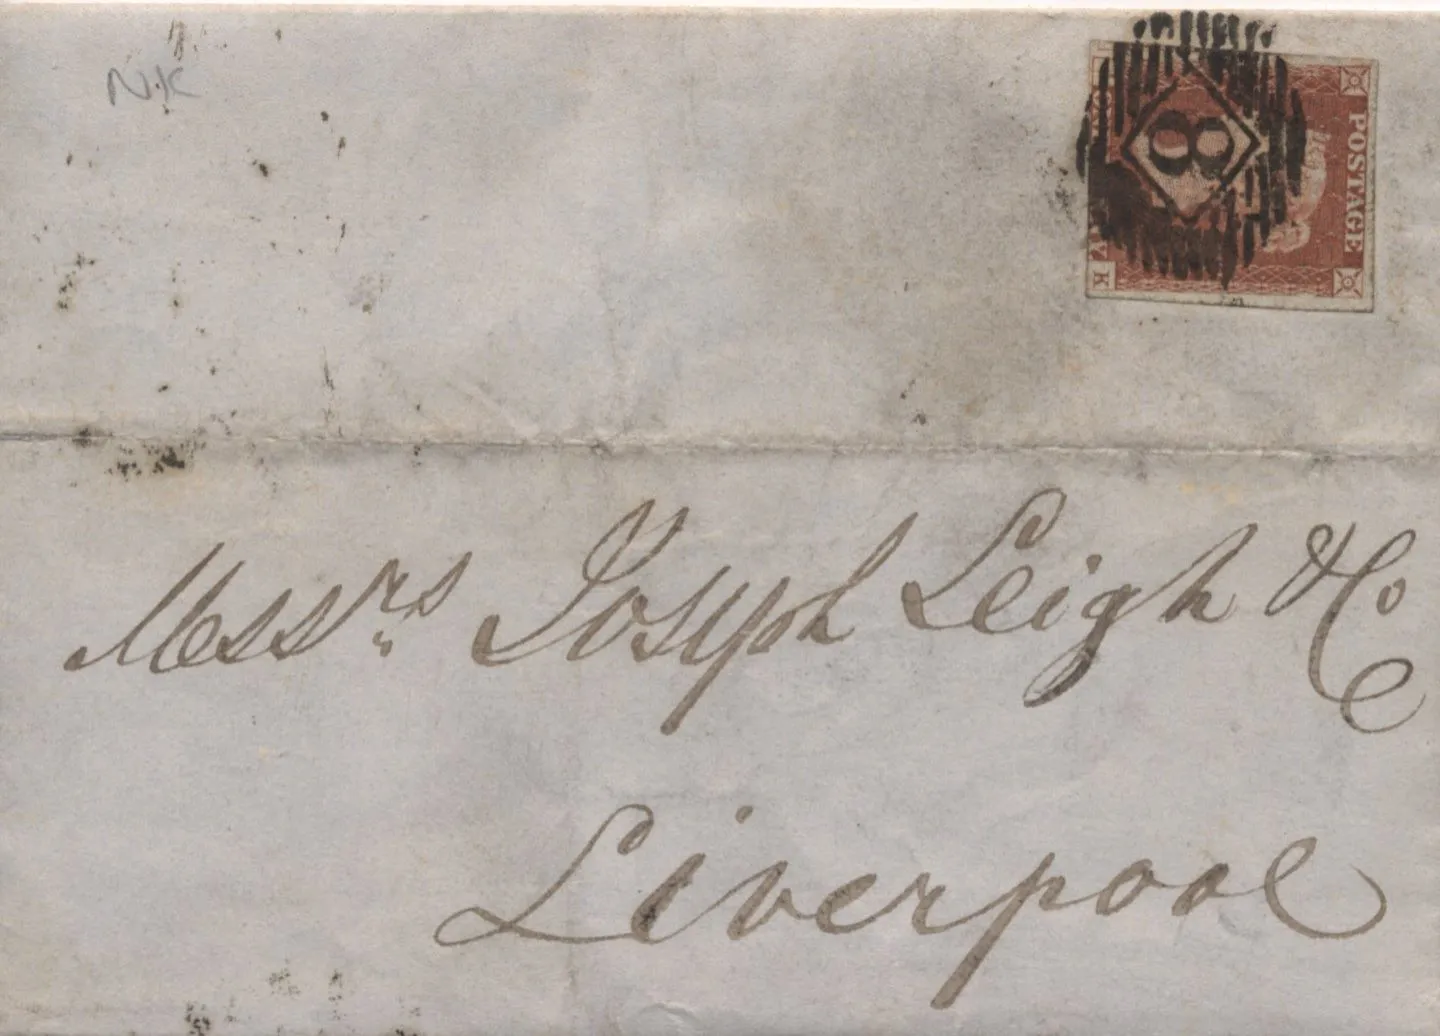 N.K
POSTAGE
8
K
Messrs Joseph Leigh & Co
Liverpool